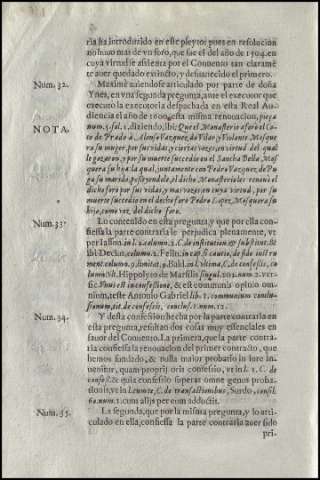 ria ha introduzido en este pleyto; pues en resolucion
no huuo mas de vn foro, que fue el del año de 1504. en
cuya virtud se assienta por el Conuento tan claramẽ
te auer quedado extincto, y desuanecido el primero.
Num. 32. Maximè auiendose articulado por parte de doña
Ynes, en vna segunda pregunta, ante el executor que
executo la executoria despachada en esta Real Au-
diencia el año de 1600. esta misma renouacion, pieça
NOTA. num. 5. fol. 1. diziendo, ibi; Que el Monasterio aforò el Co-
to de Prado à Alonso Vazquez de Vilar, y Violante Mosque
ra su muger, por sus vidas, y ciertas vozes, en virtud del qual
le gozaron, y por su muerte succediò en el Sancha Bella Mos
quera su hija la qual, juntamente con Pedro Vazquez de Pu
ga su marido, posseyendole, el dicho Monasterio les renouò el
dicho foro por sus vidas, y mas vozes en cuya virtud, por su
muerte succediò en el dicho foro Pedro Lopez Mosquera su
hijo, como voz del dicho foro.
Num. 33. Lo contenido en esta pregunta, y que por ella con-
fiessa la parte contraria le perjudica plenamente, vt
per Iasson. in l. 2. column. 3. C. de institution. & substitut. &
ibi Decius, column. 2. Felin. in cap. si cautio, de fide instru
ment. column. 9. limitat. 5. Bald. in l. vltima, C. de confess. co
lumn. vlt. Hippolyto de Marsilis singul. 202. num. 2. versic.
Vnus est in confessione, & est communis opinio om-
nium, teste Antonio Gabriel lib. 1. communium conclu-
sionum, tit. de confessis, conclus. 1. num. 12.
Num. 34. Y desta confession hecha por la parte contraria en
esta pregunta, resultan dos cosas muy essenciales en
fauor del Conuento. La primera, que la parte contra-
ria confiessa la renouacion del primer contracto, que
hemos fundado, & nulla maior probatio in iure in-
uenitur, quam proprij oris confessio, vt in l. 1. C. de
confess. & quia confessio superat omne genus proba-
tionis, vt in l. cum te, C. de transactionibus, Surdo, consil.
60. num. 1. cum alijs per eum adductis.
Num. 35. La segunda, que por la misma pregunta, y lo arti-
culado en ella, confiessa la parte contraria auer sido
pri-